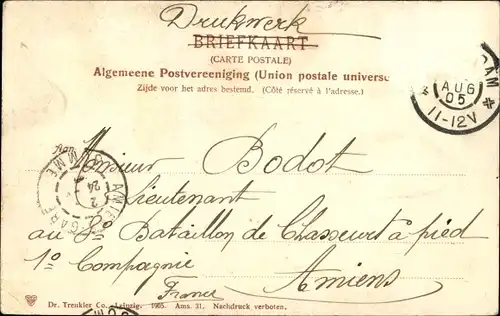 Drukwerk
BRIEFKAART
(CARTE POSTALE)
Algemeene Postvereeniging (Union postale universe
Zijde voor het adres bestemd. (Côté réservé à l'adresse.)
DAM
AUG
05
11-12V
Monsieur Bodot
Lieutenant
au 8º Bataillon de Chasseurs à pied
1º Compagnie Amiens
France
AMIENS
GARE
SOMME
24
Dr. Trenkler Co., Leipzig. 1905. Ams. 31. Nachdruck verboten.